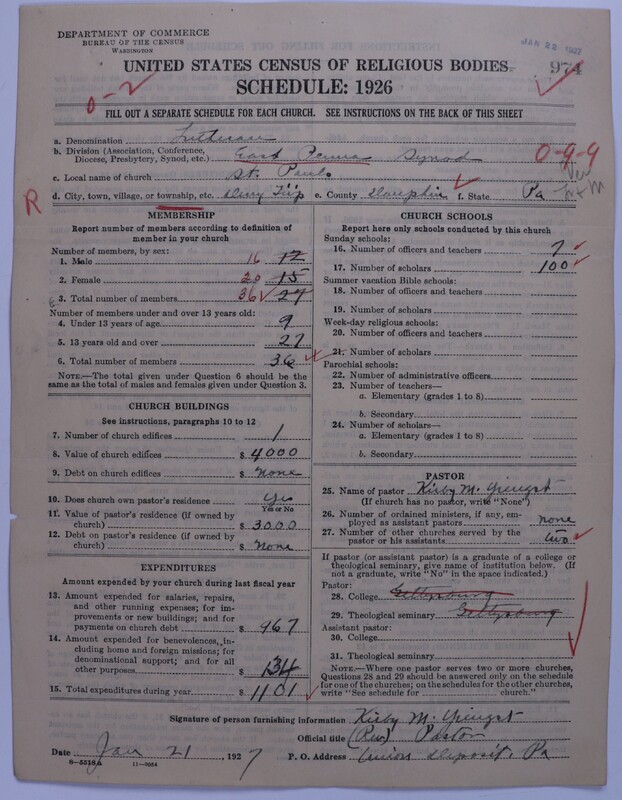 DEPARTMENT OF COMMERCE
BUREAU OF THE CENSUS
WASHINGTON
JAN 22 1927
974
UNITED STATES CENSUS OF RELIGIOUS BODIES
SCHEDULE: 1926
0-2
FILL OUT A SEPARATE SCHEDULE FOR EACH CHURCH. SEE INSTRUCTIONS ON THE BACK OF THIS SHEET
a. Denomination Lutheran
b. Division (Association, Conference, Diocese, Presbytery, Synod, etc.) East Penna Synod
0-9-9
c. Local name of church St. Pauls
R
d. City, town, village, or township, etc. Derry Twp e. County Dauphin f. State Pa
MEMBERSHIP
Report number of members according to definition of member in your church
Number of members, by sex:
1. Male 16 12
2. Female 20 15
3. Total number of members 36 27
Number of members under and over 13 years old:
4. Under 13 years of age 9
5. 13 years old and over 27
6. Total number of members 36
NOTE.—The total given under Question 6 should be the same as the total of males and females given under Question 3.
CHURCH BUILDINGS
See instructions, paragraphs 10 to 12
7. Number of church edifices 1
8. Value of church edifices $ 4000
9. Debt on church edifices $ None
10. Does church own pastor's residence Yes
Yes or No
11. Value of pastor's residence (if owned by church) $ 3000
12. Debt on pastor's residence (if owned by church) $ None
EXPENDITURES
Amount expended by your church during last fiscal year
13. Amount expended for salaries, repairs, and other running expenses; for improvements or new buildings; and for payments on church debt $ 967
14. Amount expended for benevolences, including home and foreign missions; for denominational support; and for all other purposes $ 134
15. Total expenditures during year $ 1101
CHURCH SCHOOLS
Report here only schools conducted by this church
Sunday schools:
16. Number of officers and teachers 7
17. Number of scholars 100
Summer vacation Bible schools:
18. Number of officers and teachers
19. Number of scholars
Week-day religious schools:
20. Number of officers and teachers
21. Number of scholars
Parochial schools:
22. Number of administrative officers
23. Number of teachers—
a. Elementary (grades 1 to 8)
b. Secondary
24. Number of scholars—
a. Elementary (grades 1 to 8)
b. Secondary
PASTOR
25. Name of pastor Kirby M. Yiengst
(If church has no pastor, write "None")
26. Number of ordained ministers, if any, employed as assistant pastors none
27. Number of other churches served by the pastor or his assistants two
If pastor (or assistant pastor) is a graduate of a college or theological seminary, give name of institution below. (If not a graduate, write "No" in the space indicated.)
Pastor:
28. College Gettysburg
29. Theological seminary Gettysburg
Assistant pastor:
30. College
31. Theological seminary
NOTE.—Where one pastor serves two or more churches, Questions 28 and 29 should be answered only on the schedule for one of the churches; on the schedules for the other churches, write "See schedule for church."
Signature of person furnishing information Kirby M. Yiengst
Official title (Rev) Pastor
Date Jan 21, 1927 P. O. Address Union Deposit, Pa
8-5518a 11-9854